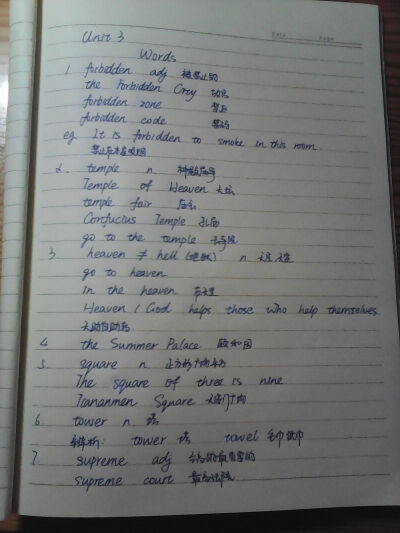 Unit 3
Words
1. forbidden adj 被禁止的
the Forbidden City 故宫
forbidden zone 禁区
forbidden code 禁码
eg. It is forbidden to smoke in this room.
禁止在本室吸烟
2. temple n
Temple of Heaven 天坛
temple fair 庙会
Confucius Temple 孔庙
go to the temple
3. heaven ≠ hell (地狱) n 天堂
go to heaven
in the heaven 在天堂
Heaven / God helps those who help themselves
天助自助者
4. the Summer Palace 颐和园
5. square n. 正方形 广场 平方
The square of three is nine
Tiananmen Square 天安门广场
6. tower n. 塔
辨析: tower 塔 towel 毛巾
7. supreme adj 最重要的
supreme court 最高法院